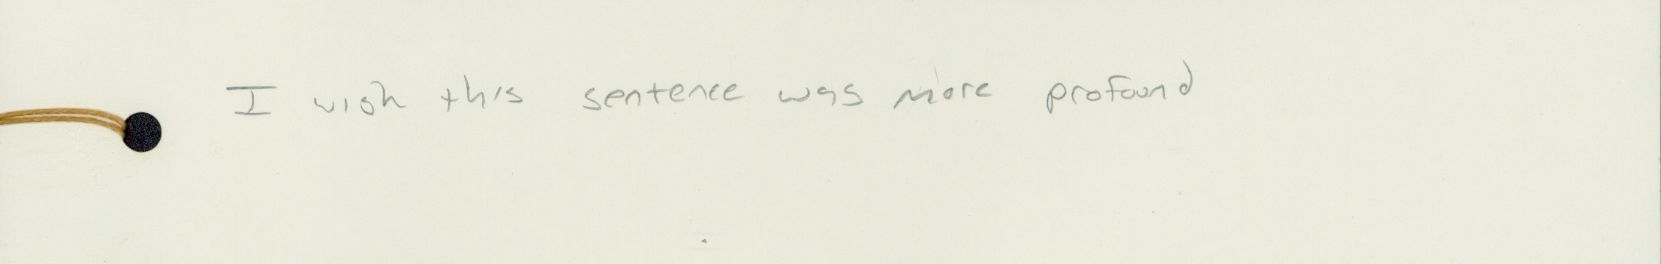 I wish this sentence was more profound